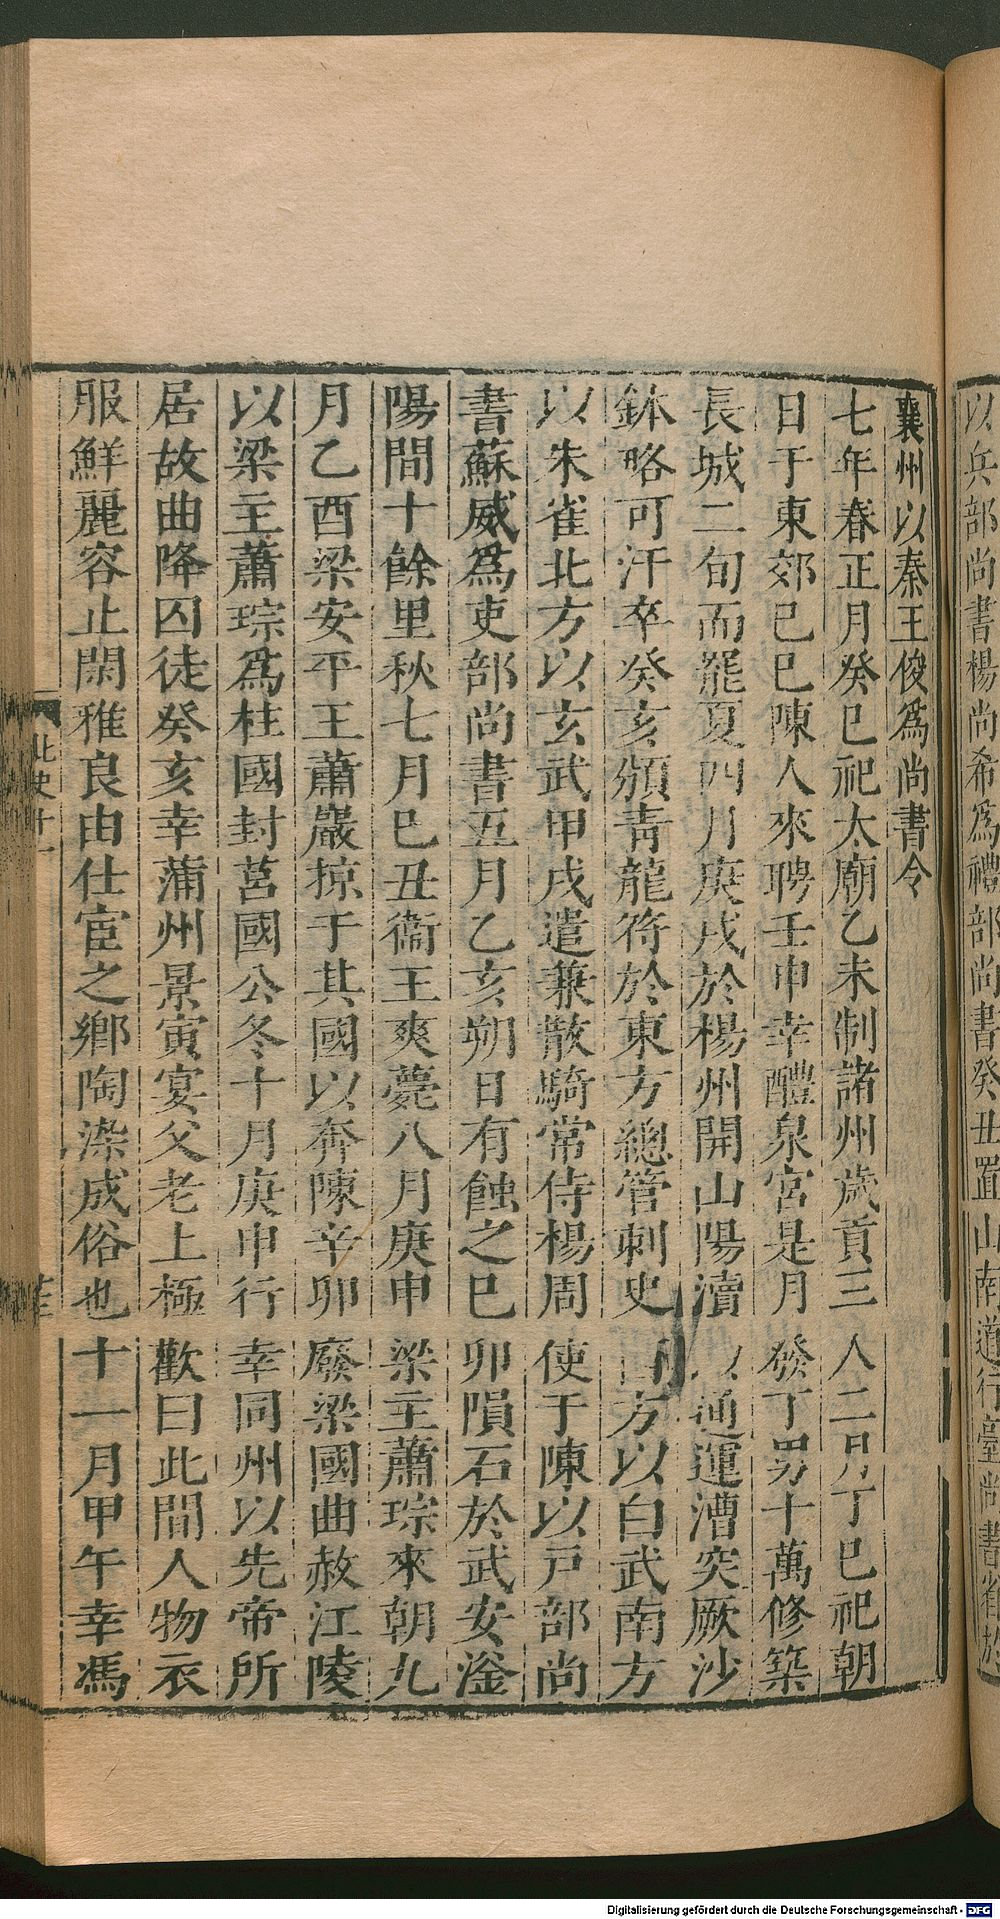 以兵部尚書楊尚希爲禮部尚書癸丑置山南道行臺尚書省於
襄州以秦王俊爲尚書令
七年春正月癸巳祀太廟乙未制諸州歲貢三人二月丁巳祀朝
日于東郊己巳陳人來聘壬申幸醴泉宮是月發丁男十萬修築
長城二旬而罷夏四月庚戌於楊州開山陽瀆以通運漕突厥沙
鉢略可汗卒癸亥頒青龍符於東方總管刺史西方以白武南方
以朱雀北方以玄武甲戌遣兼散騎常侍楊周使于陳以戸部尚
書蘇威爲吏部尚書五月乙亥朔日有蝕之巳卯隕石於武安滏
陽間十餘里秋七月巳丑衞王爽薨八月庚申梁主蕭琮來朝九
月乙酉梁安平王蕭巖掠于其國以奔陳辛卯廢梁國曲赦江陵
以梁主蕭琮爲柱國封莒國公冬十月庚申行幸同州以先帝所
居故曲降囚徒癸亥幸蒲州景寅宴父老上極歡曰此間人物衣
服鮮麗容止閑雅良由仕宦之鄉陶染成俗也十一月甲午幸馮
北史十一
Digitalisierung gefördert durch die Deutsche Forschungsgemeinschaft - DFG